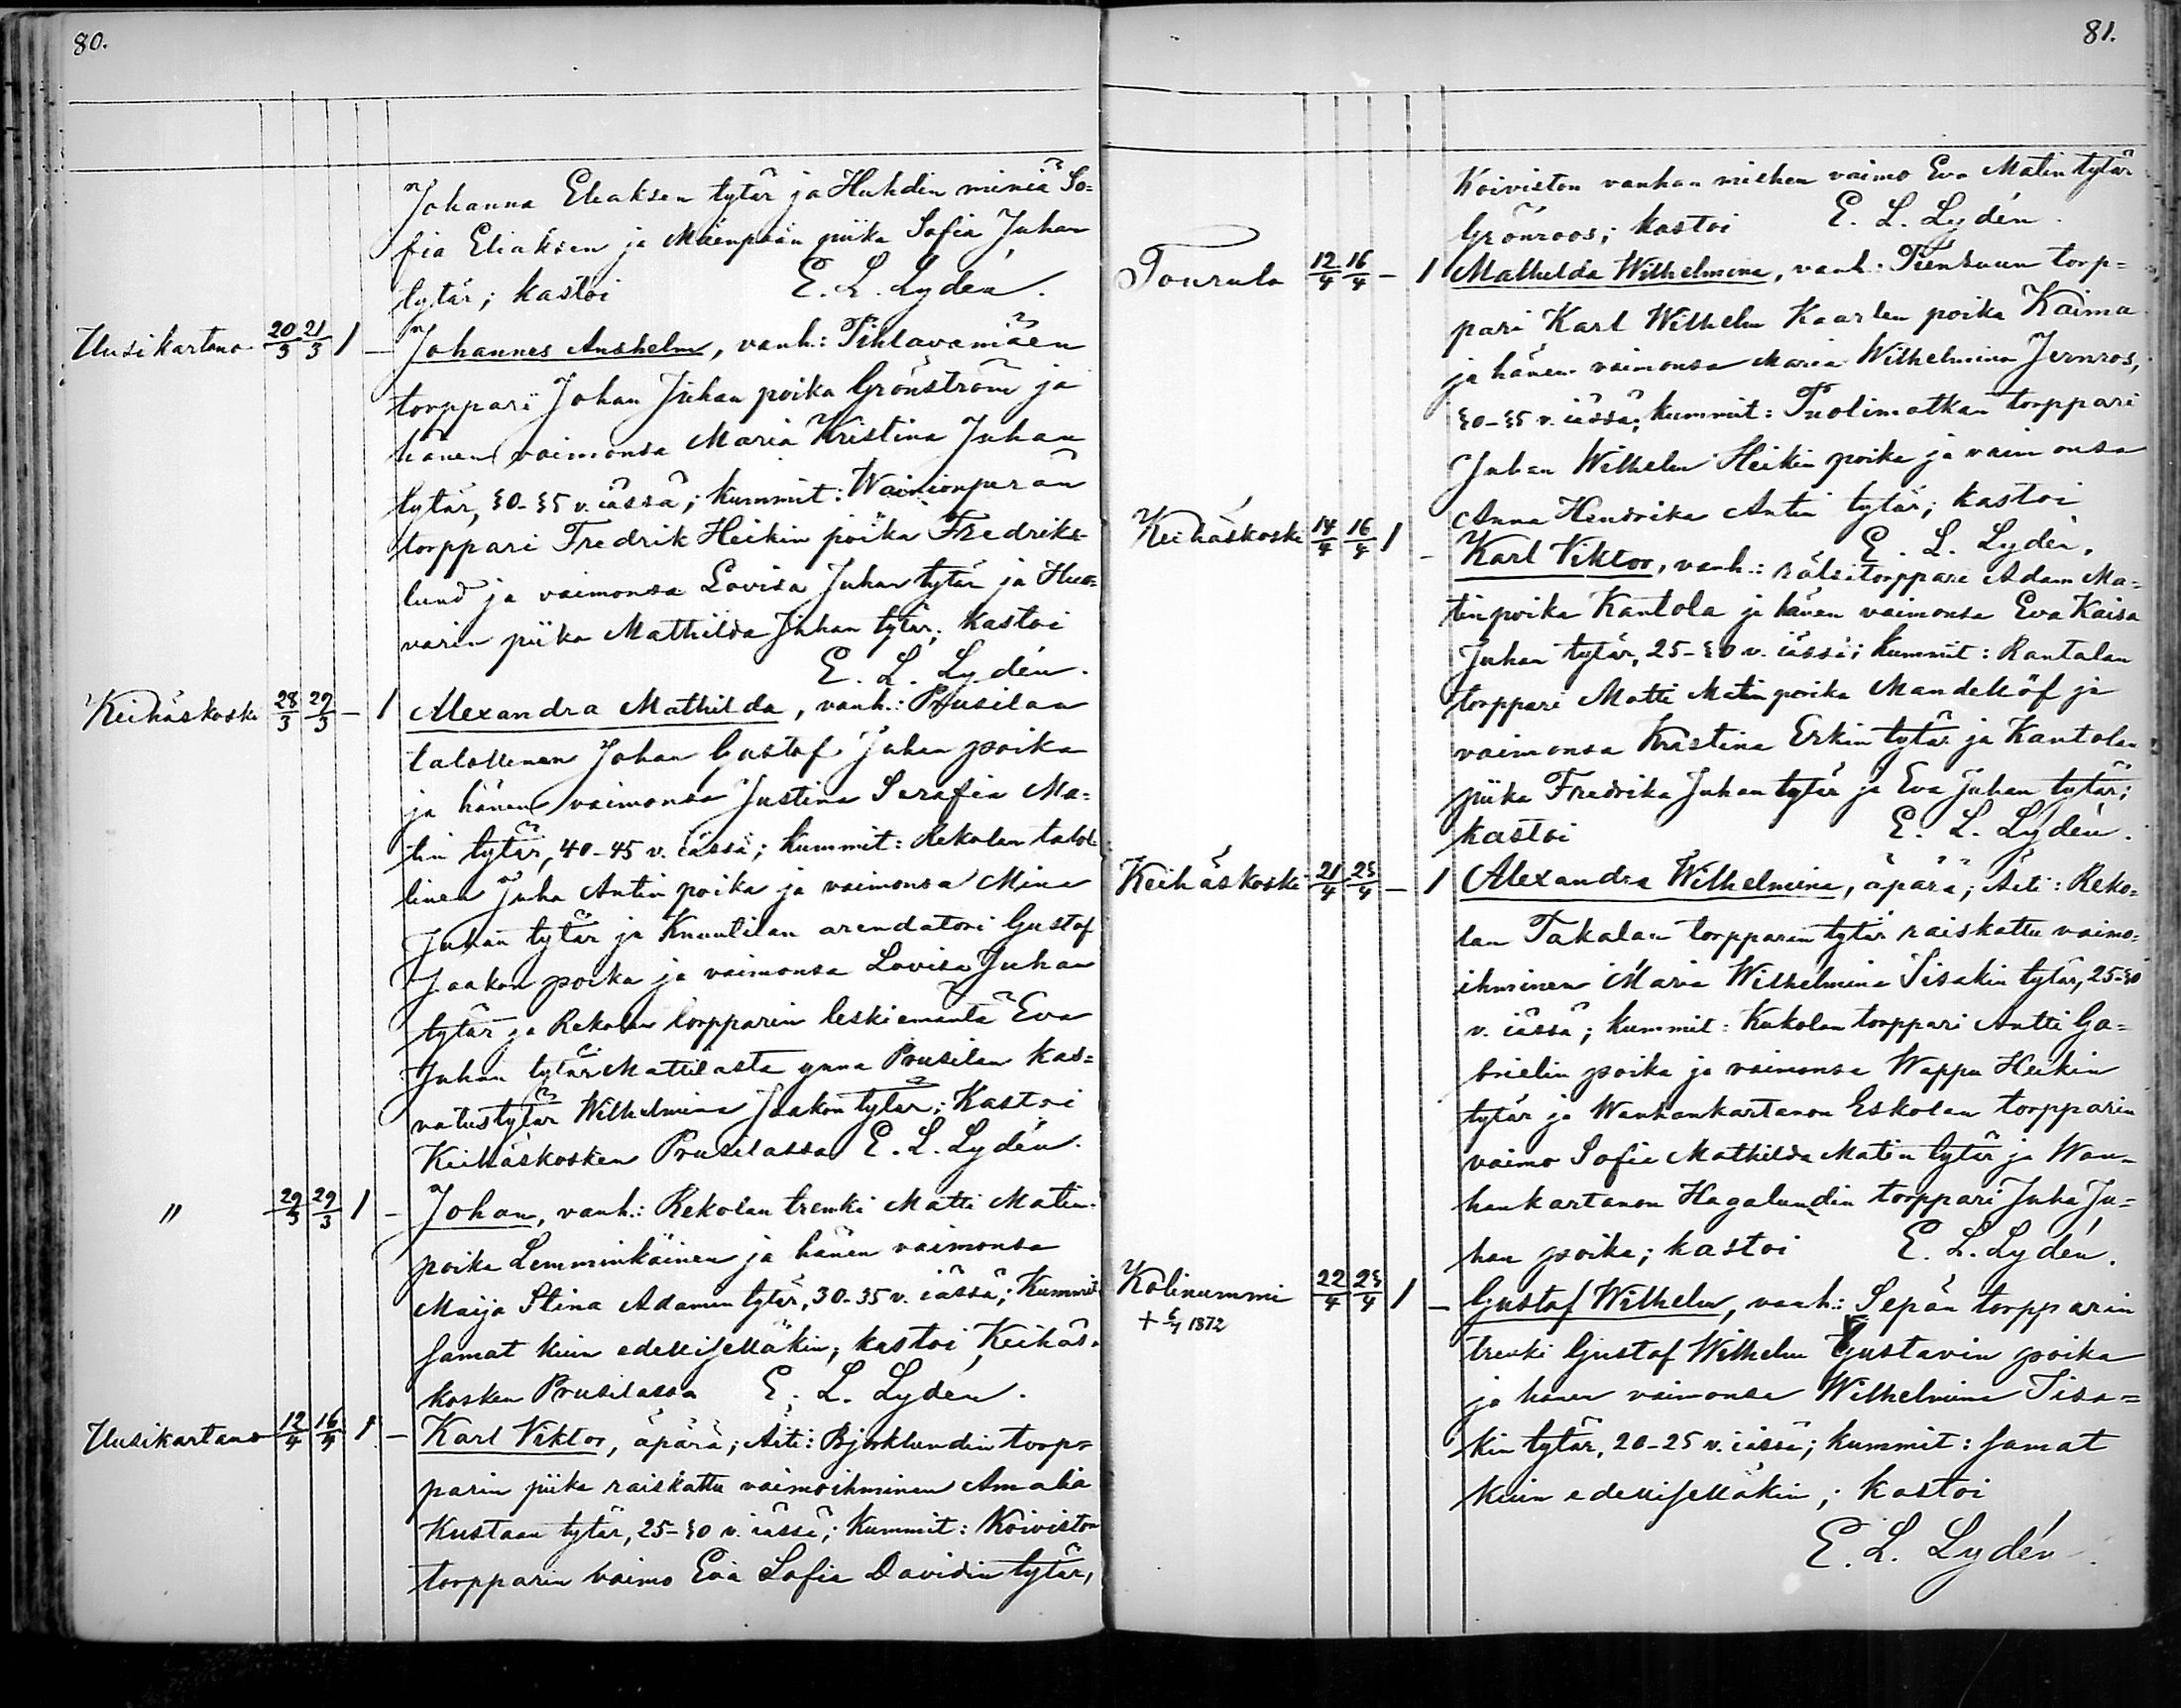 80.
Johanna Eliaksen tytär ja Huhdin miniä So=
fia Eliaksen ja Mäenpään piika Sofia Juhan
tytär; kastoi E. L. Lydén.
Uusikartano 20/3 21/3 1 — Johannes Anshelm, vanh.: Pihlavamäen
torppari Johan Juhan poika Grönström ja
hänen vaimonsa Maria Kristina Juhan
tytär, 30-35 v. iässä; kummit: Wainionperän
torppari Fredrik Heikin poika Fredriks=
lund ja vaimonsa Lovisa Juhan tytär ja Huo=
varin piika Mathilda Juhan tytär; kastoi
E. L. Lydén.
Keihäskoski 28/3 29/3 — 1 Alexandra Mathilda, vanh.: Prusilan
talollinen Johan Gustaf Juhan poika
ja hänen vaimonsa Justina Serafia Ma=
tin tytär, 40-45 v. iässä; kummit: Rekolan talol=
linen Juha Antin poika ja vaimonsa Mina
Juhan tytär ja Knuutilan arendatori Gustaf
Jaakon poika ja vaimonsa Lovisa Juhan
tytär ja Rekolan torpparin leskiemäntä Eva
Juhan tytär Mattilasta ynnä Prusilan kas=
vatustytär Wilhelmina Jaakon tytär; Kastoi
Keihäskosken Prusilassa E. L. Lydén.
" 29/3 29/3 1 — Johan, vanh.: Rekolan trenki Matti Matin
poika Lemminkäinen ja hänen vaimonsa
Maija Stina Adamin tytär, 30-35 v. iässä; Kummit
samat kuin edelliselläkin; kastoi Keihäs=
kosken Prusilassa E. L. Lydén.
Uusikartano 12/4 16/4 1 — Karl Viktor, äpärä; Äiti: Björklundin torp=
parin piika raiskattu vaimoihminen Amalia
Kustaan tytär, 25-30 v. iässä; kummit: Koiviston
torpparin vaimo Eva Sofia Davidin tytär,
81.
Koiviston vanhan miehen vaimo Eva Matin tytär
Grönroos; kastoi E. L. Lydén.
Tourula 12/4 16/4 — 1 Mathilda Wilhelmina, vanh.: Piensuun torp=
pari Karl Wilhelm Kaarlen poika Kaima
ja hänen vaimonsa Maria Wilhelmina Jernros,
30-35 v. iässä; kummit: Puolimatkan torppari
Juhan Wilhelm Heikin poika ja vaimonsa
Anna Hendrika Antin tytär; kastoi
E. L. Lydén.
Keihäskoski 14/4 16/4 1 — Karl Viktor, vanh.: rälsitorppari Adam Ma=
tin poika Kantola ja hänen vaimonsa Eva Kaisa
Juhan tytär, 25-30 v. iässä; kummit: Rantalan
torppari Matti Matin poika Mandellöf ja
vaimonsa Kristina Erkin tytär ja Kantolan
piika Fredrika Juhan tytär ja Eva Juhan tytär;
kastoi E. L. Lydén.
Keihäskoski 21/4 23/4 — 1 Alexandra Wilhelmina, äpärä; Äiti: Reko=
lan Takalan torpparin tytär raiskattu vaimo=
ihminen Maria Wilhelmina Iisakin tytär, 25-30
v. iässä; kummit: Kukolan torppari Antti Ga=
brielin poika ja vaimonsa Wappu Heikin
tytär ja Wanhankartanon Eskolan torpparin
vaimo Sofia Mathilda Matin tytär ja Wan=
hankartanon Hagalundin torppari Juha Ju=
han poika; kastoi E. L. Lydén.
Kolinummi 22/4 23/4 1 — Gustaf Wilhelm, vanh.: Sepän torpparin
+ 6/7 1872
trenki Gustaf Wilhelm Gustavin poika
ja hänen vaimonsa Wilhelmina Iisa=
kin tytär, 20-25 v. iässä; kummit: samat
kuin edelliselläkin; kastoi
E. L. Lydén.